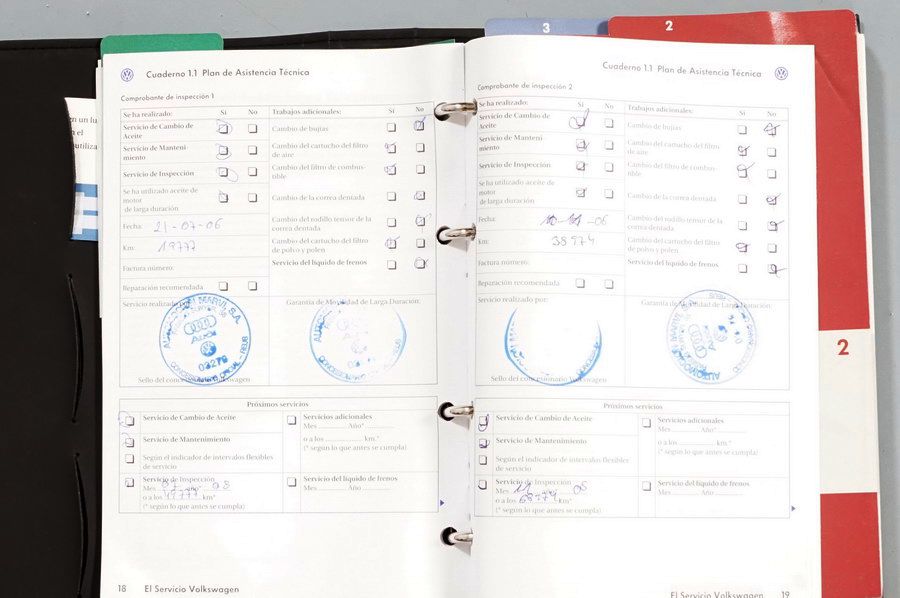 3
2
Cuaderno 1.1 Plan de Asistencia Técnica
Comprobante de inspección 1
Se ha realizado: Sí No Trabajos adicionales: Sí No
Servicio de Cambio de
Aceite
Cambio de bujías
Servicio de Manteni-
miento
Cambio del cartucho del filtro
de aire
Servicio de Inspección
Cambio del filtro de combus-
tible
Se ha utilizado aceite de
motor
de larga duración
Cambio de la correa dentada
Fecha: 21-07-06
Cambio del rodillo tensor de la
correa dentada
Km: 19777
Cambio del cartucho del filtro
de polvo y polen
Factura número:
Servicio del líquido de frenos
Reparación recomendada
Servicio realizado por:
Garantía de Movilidad de Larga Duración:
Audi
03279
Sello del concesionario Volkswagen
Próximos servicios
Servicio de Cambio de Aceite
Servicios adicionales
Mes Año*
Servicio de Mantenimiento
o a los km*
(* según lo que antes se cumpla)
Según el indicador de intervalos flexibles
de servicio
Servicio de Inspección
Mes 08
o a los km*
(* según lo que antes se cumpla)
Servicio del líquido de frenos
Mes Año*
18 El Servicio Volkswagen
Cuaderno 1.1 Plan de Asistencia Técnica
Comprobante de inspección 2
Se ha realizado: Sí No Trabajos adicionales: Sí No
Servicio de Cambio de
Aceite
Cambio de bujías
Servicio de Manteni-
miento
Cambio del cartucho del filtro
de aire
Servicio de Inspección
Cambio del filtro de combus-
tible
Se ha utilizado aceite de
motor
de larga duración
Cambio de la correa dentada
Fecha: -06
Cambio del rodillo tensor de la
correa dentada
Km: 38974
Cambio del cartucho del filtro
de polvo y polen
Factura número:
Servicio del líquido de frenos
Reparación recomendada
Servicio realizado por:
Garantía de Movilidad de Larga Duración:
Sello del concesionario Volkswagen
Próximos servicios
Servicio de Cambio de Aceite
Servicios adicionales
Mes Año*
Servicio de Mantenimiento
o a los km*
(* según lo que antes se cumpla)
Según el indicador de intervalos flexibles
de servicio
Servicio de Inspección
Mes 11
o a los km*
(* según lo que antes se cumpla)
Servicio del líquido de frenos
Mes Año*
El Servicio Volkswagen 19
2